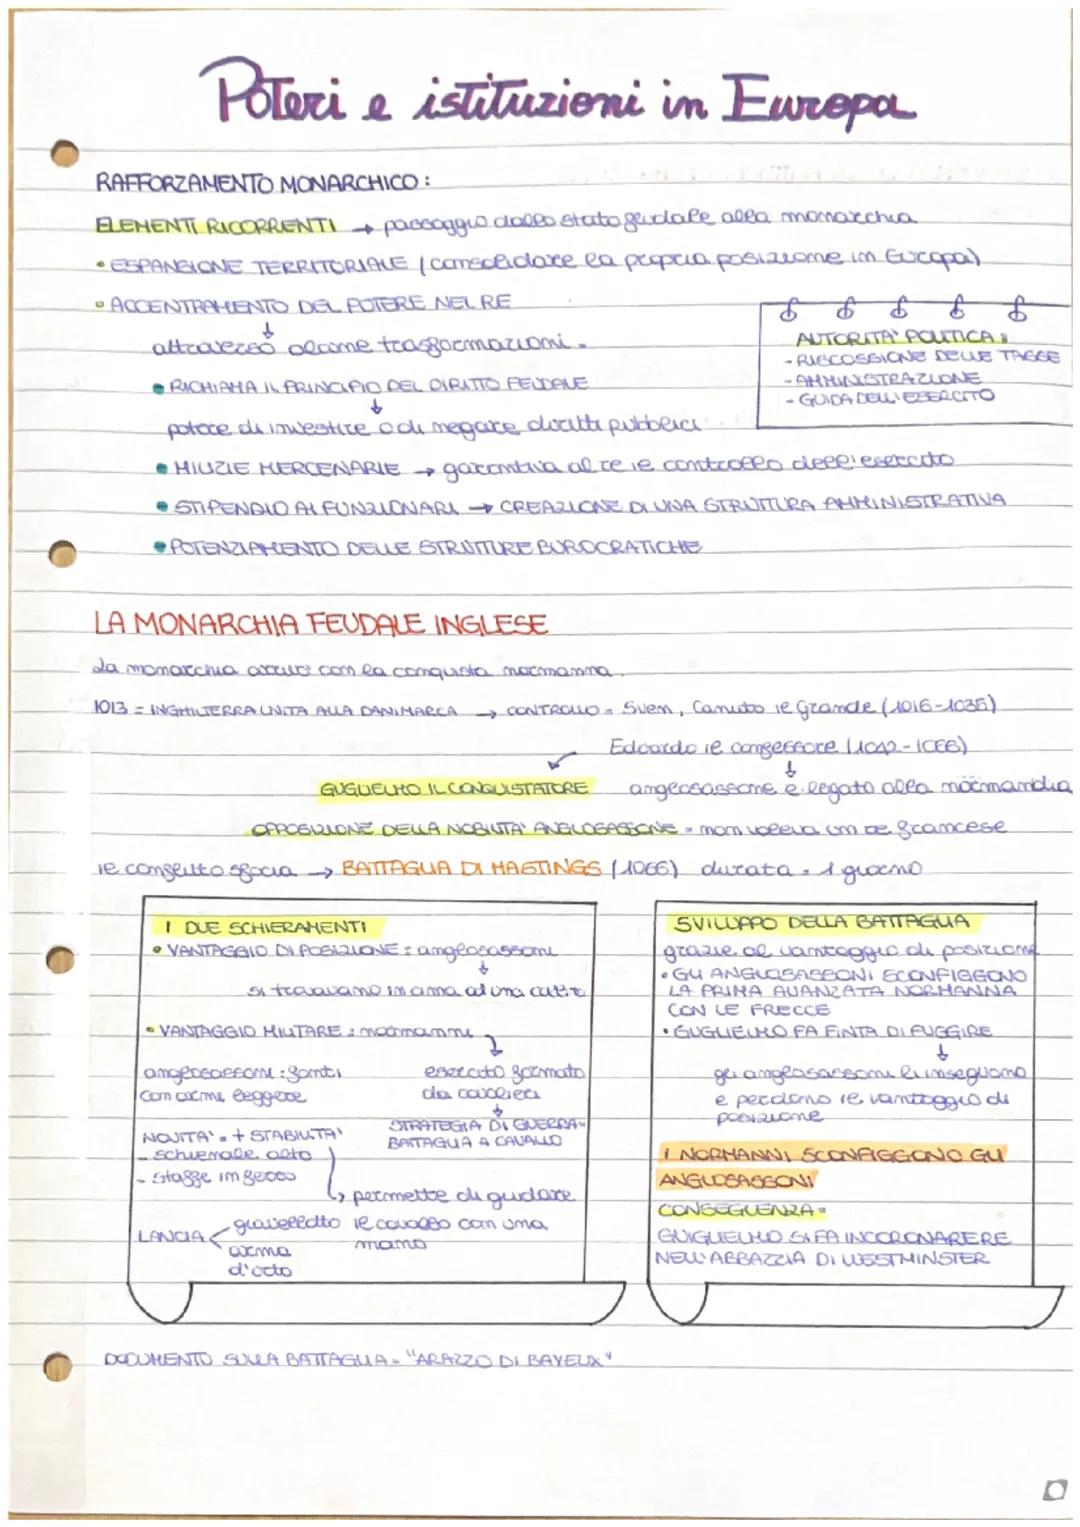 Poteri e istituzioni in Europa
RAFFORZAMENTO MONARCHICO:
ELEMENTI RICORRENTI → passaggio dallo stato feudale alla monarchia
• ESPANSIONE TERRITORIALE (consolidare la propria posizione in Europa)
• ACCENTRAMENTO DEL POTERE NEL RE
↓
attraverso alcune trasformazioni =
• RICHIAMA IL PRINCIPIO DEL DIRITTO FEUDALE
↓
potere di investire o di negare diritti pubblici
• MILIZIE MERCENARIE → garantiva al re il controllo dell'esercito
• STIPENDIO AI FUNZIONARI → CREAZIONE DI UNA STRUTTURA AMMINISTRATIVA
• POTENZIAMENTO DELLE STRUTTURE BUROCRATICHE
AUTORITA' POLITICA:
- RISCOSSIONE DELLE TASSE
- AMMINISTRAZIONE
- GUIDA DELL'ESERCITO
LA MONARCHIA FEUDALE INGLESE
La monarchia arrivò con la conquista normanna
1013 = INGHILTERRA UNITA ALLA DANIMARCA → CONTROLLO = Sven, Canuto il Grande (1016-1035)
Edoardo il confessore (1042-1066)
↓
GUGLIELMO IL CONQUISTATORE
anglosassone è legato alla normandia
OPPOSIZIONE DELLA NOBILTA' ANGLOSASSONE = non voleva un re francese
il conflitto sfocia → BATTAGLIA DI HASTINGS (1066) durata = 1 giorno
I DUE SCHIERAMENTI
• VANTAGGIO DI POSIZIONE: anglosassoni
↓
si trovavano in cima ad una collina
• VANTAGGIO MILITARE: normanni
↓
anglosassoni: fanti
con armi leggere
esercito formato
da cavalieri
↓
STRATEGIA DI GUERRA=
BATTAGLIA A CAVALLO
NOVITA' = + STABILITA'
- schienale alto
- staffe in ferro
↳ permette di guidare
il cavallo con una
mano
LANCIA
giavellotto
arma
d'urto
SVILUPPO DELLA BATTAGLIA
grazie al vantaggio di posizione
• GLI ANGLOSASSONI SCONFIGGONO
LA PRIMA AVANZATA NORMANNA
CON LE FRECCE
• GUGLIELMO FA FINTA DI FUGGIRE
↓
gli anglosassoni li inseguono
e perdono il vantaggio di
posizione
I NORMANNI SCONFIGGONO GLI
ANGLOSASSONI
CONSEGUENZA=
GUIGLIELMO SI FA INCORONARE RE
NELL'ABBAZZIA DI WESTMINSTER
DOCUMENTO SULLA BATTAGLIA = "ARAZZO DI BAYEUX"